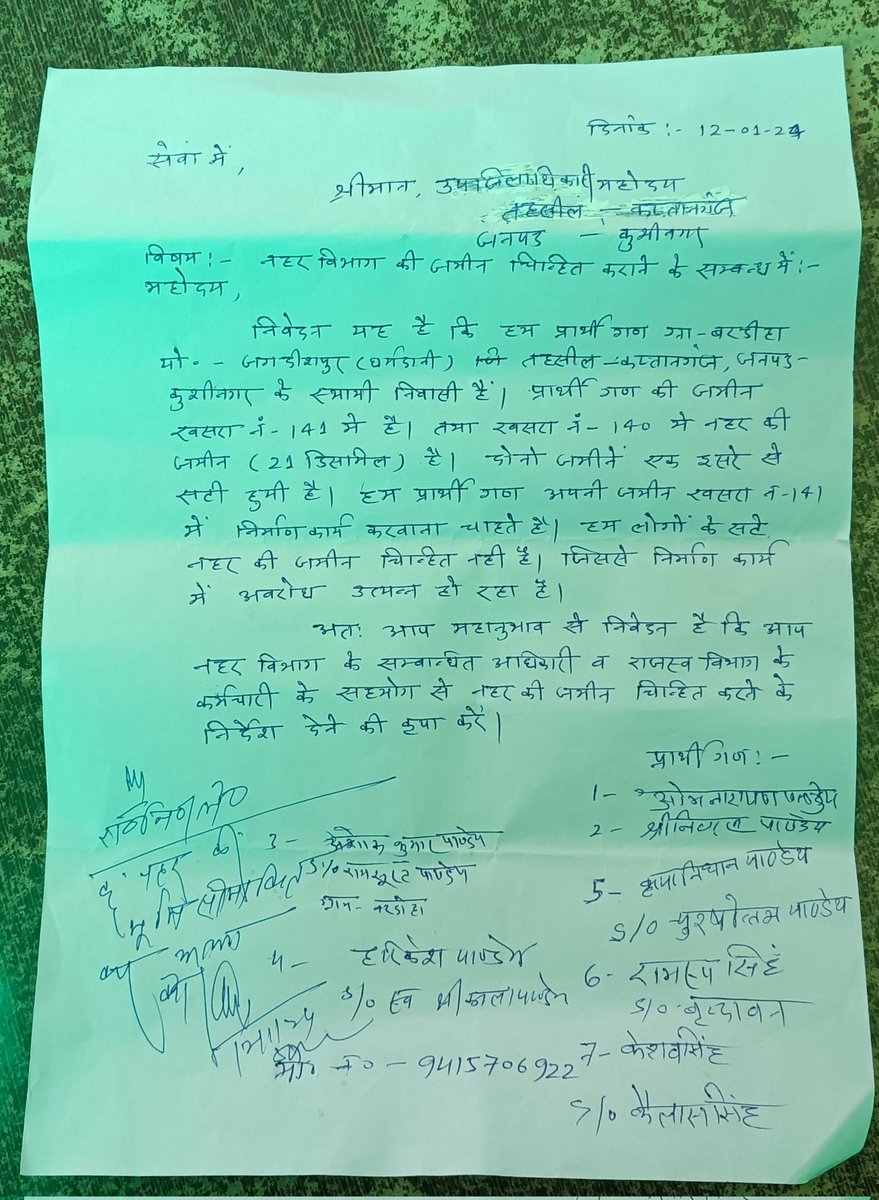 दिनांक :- 12-01-24
सेवा में,
श्रीमान, उपजिलाधिकारी महोदय
तहसील - कप्तानगंज
जनपद - कुशीनगर
विषय :- नहर विभाग की जमीन चिन्हित कराने के सम्बन्ध में :-
महोदय,
निवेदन यह है कि हम प्रार्थी गण ग्रा-बरडीहा
पो०- जगदीशपुर (धर्मदानी) तहसील-कप्तानगंज, जनपद-
कुशीनगर के स्थायी निवासी हैं। प्रार्थी गण की जमीन
खसरा नं-141 मे है। तथा खसरा नं-140 मे नहर की
जमीन (21 डिसमिल) है। दोनो जमीनें एक दुसरे से
सटी हुयी है। हम प्रार्थी गण अपनी जमीन खसरा नं-141
में निर्माण कार्य करवाना चाहते है। हम लोगों के सटे
नहर की जमीन चिन्हित नही है। जिससे निर्माण कार्य
में अवरोध उत्पन्न हो रहा है।
अतः आप महानुभाव से निवेदन है कि आप
नहर विभाग के सम्बन्धित अधिकारी व राजस्व विभाग के
कर्मचारी के सहयोग से नहर की जमीन चिन्हित करने के
निर्देश देने की कृपा करें।
प्रार्थी गण :-
1- ओमनारायण पाण्डेय
2- श्रीनिवास पाण्डेय
3- अशोक कुमार पाण्डेय
S/O रामसूरत पाण्डेय
ग्राम- बरडीहा
4- हरिकेश पाण्डेय
S/O स्व श्री कला पाण्डेय
मो० न० - 9415706922
5- कृपानिधान पाण्डेय
S/O पुरुषोत्तम पाण्डेय
6- रामरूप सिंह
S/O बृन्दावन
7- केशवसिंह
S/O कैलाससिंह
नहर की
भूमि